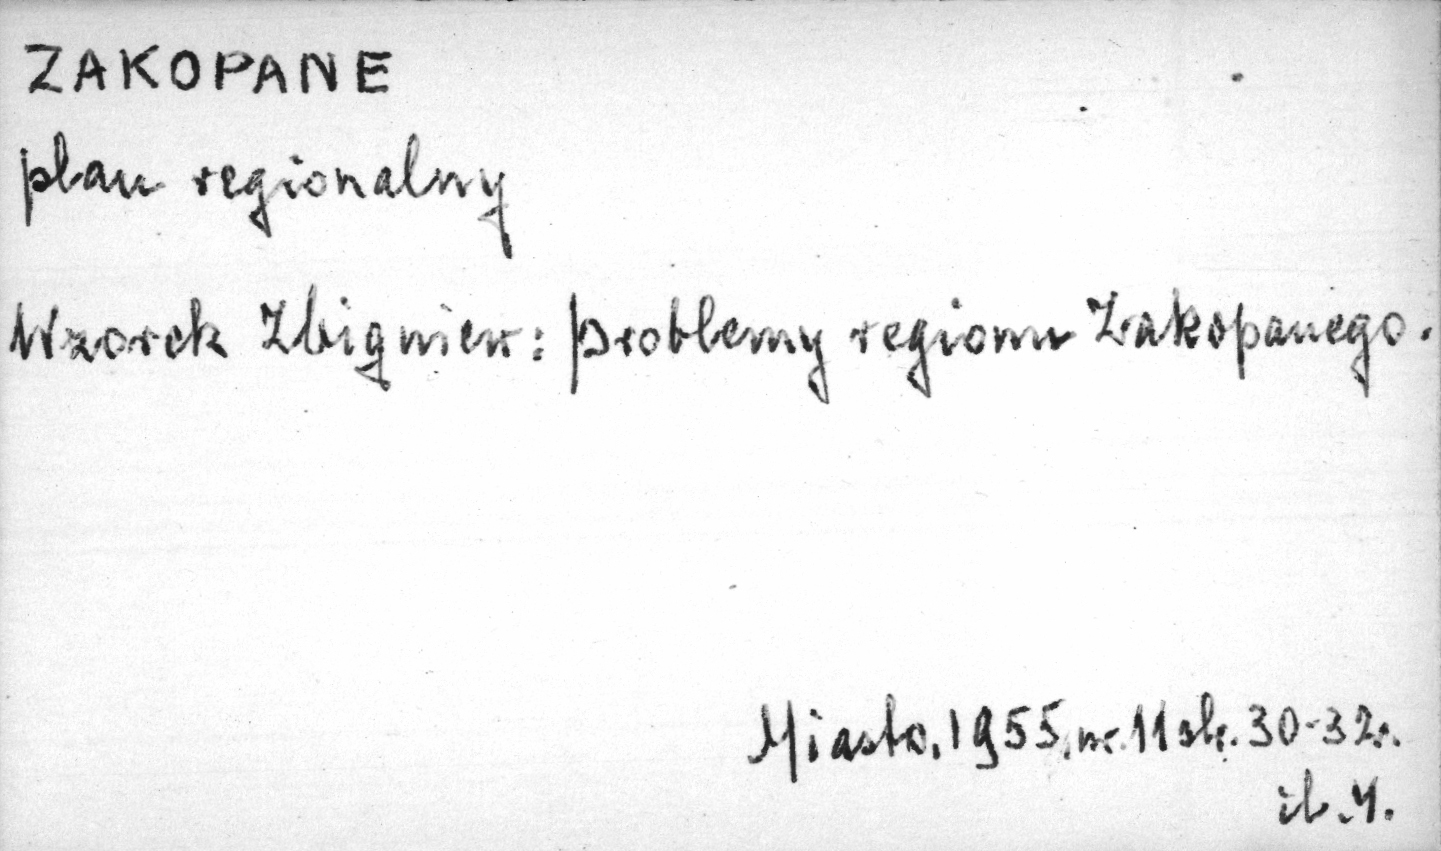 ZAKOPANE
plan regionalny
Wzorek Zbigniew: problemy regionu Zakopanego.
Miasto, 1955, nr. 11 str. 30-32
il. 4.